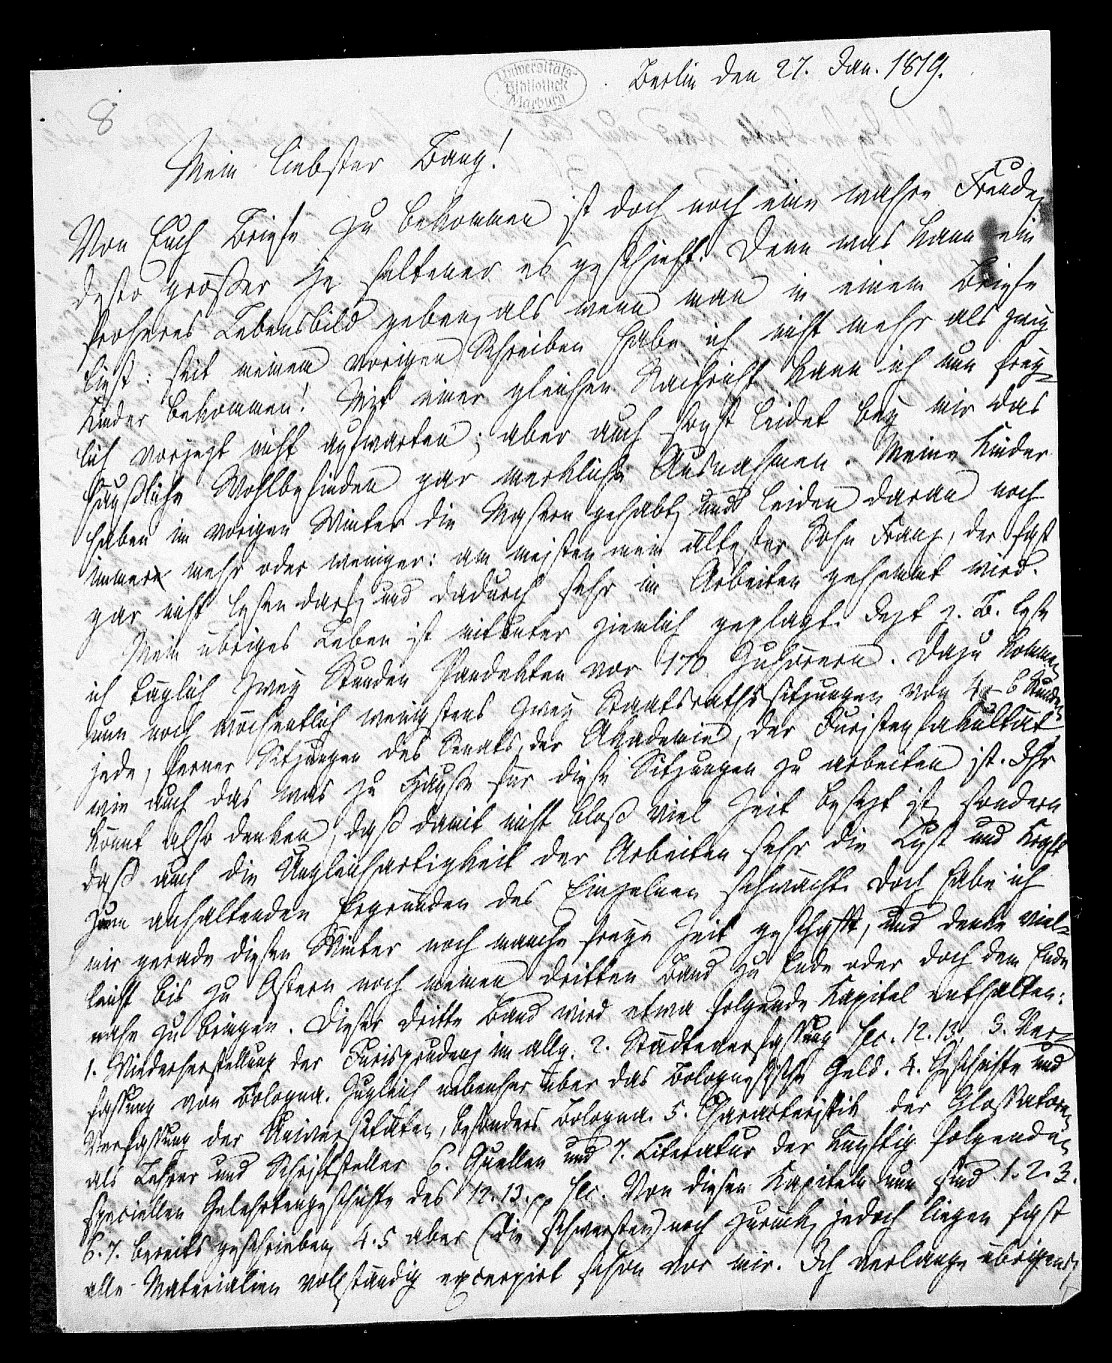 8
Universitäts-
Bibliothek
Marburg
Berlin den 27. Jan. 1819.
Mein liebster Bang!
Von Euch Briefe zu bekommen ist doch noch eine wahre Freude,
desto großer je seltener es geschieht. Denn was kann ein
froheres Lebensbild geben, als wenn man in einem Briefe
liest: seit meinem vorigen Schreiben habe ich nicht mehr als zwey
Kinder bekommen! Mit einer gleichen Nachricht kann ich nun frey-
lich vorjezt nicht aufwarten; aber auch sonst leidet bey mir das
häußliche Wohlbefinden gar merkliche Ausnahmen. Meine Kinder
haben im vorigen Winter die Masern gehabt, und leiden daran noch
immer mehr oder weniger: am meisten mein ältester Sohn Franz, der fast
gar nicht lesen darf, und dadurch sehr im Arbeiten gehemmt wird.
Mein übriges Leben ist mitunter ziemlich geplagt. Jezt z. B. lese
ich täglich zwey Stunden Pandekten vor 170 Zuhörern. Dazu kommen
nun noch wöchentlich wenigstens zwey Staatsrathssitzungen von 4-6 Stunden
jede, ferner Sitzungen des Senats, der Akademie, der Juristenfakultät,
wie auch das was zu Hause für diese Sitzungen zu arbeiten ist. Ihr
könnt also denken, daß damit nicht bloß viel Zeit besezt ist, sondern
daß auch die Ungleichartigkeit der Arbeiten sehr die Lust und Kraft
zum anhaltenden Ergründen des Einzelnen schwächt. Doch habe ich
mir gerade diesen Winter noch manche freye Zeit geschafft, und denke viel-
leicht bis zu Ostern noch meinen dritten Band zu Ende oder doch dem Ende
nahe zu bringen. Dieser dritte Band wird etwa folgende Kapitel enthalten:
1. Wiederherstellung der Jurisprudenz im allg. 2. Städteverfassung sec. 12. 13. 3. Ver-
fassung von Bologna. Zugleich nebenher über das Bolognesische Geld. 4. Geschichte und
Verfassung der Universitäten, besonders Bologna. 5. Charakteristik der Glossatoren,
als Lehrer und Schriftsteller 6. Quellen und 7. Literatur der künftig folgenden
speciellen Gelehrtengeschichte des 12. 13. sec. Von diesen Kapiteln nun sind 1. 2. 3.
6. 7. bereits geschrieben, 4. 5 aber (die schwersten) noch zurück, jedoch liegen fast
alle Materialien vollständig excerpirt schon vor mir. Ich verlange übrigens,